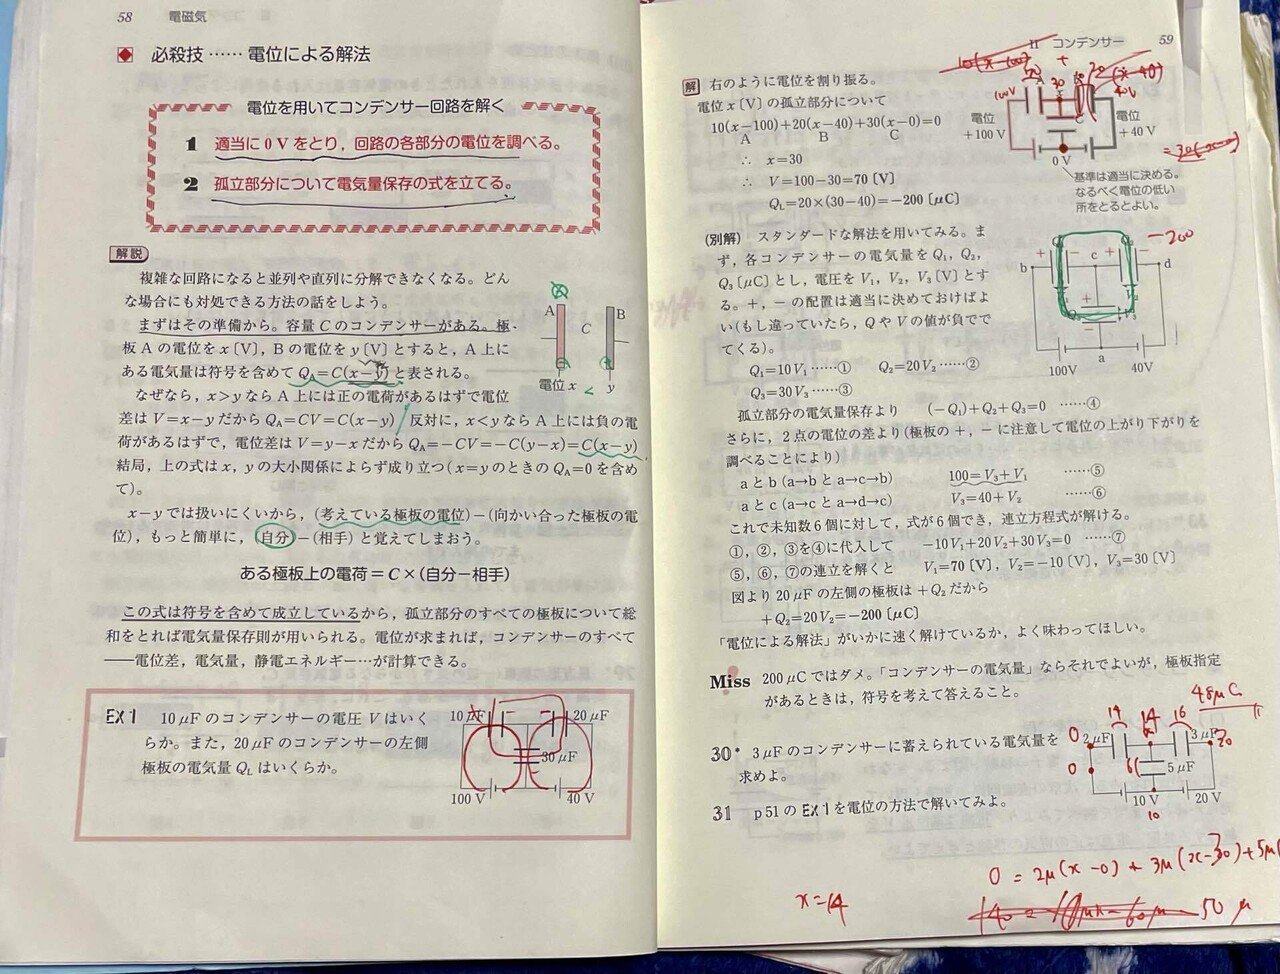 58 電磁気
必殺技……電位による解法
電位を用いてコンデンサー回路を解く
1 適当に 0 V をとり，回路の各部分の電位を調べる。
2 孤立部分について電気量保存の式を立てる。
解説
複雑な回路になると並列や直列に分解できなくなる。どん
な場合にも対処できる方法の話をしよう。
まずはその準備から。容量 C のコンデンサーがある。極
板 A の電位を x〔V〕，B の電位を y〔V〕とすると，A 上に
ある電気量は符号を含めて QA=C(x−y) と表される。
なぜなら，x>y なら A 上には正の電荷があるはずで電位
差は V=x−y だから QA=CV=C(x−y) 反対に，x<y なら A 上には負の電
荷があるはずで，電位差は V=y−x だから QA=−CV=−C(y−x)=C(x−y)
結局，上の式は x, y の大小関係によらず成り立つ（x=y のときの QA=0 を含め
て）。
x−y では扱いにくいから，（考えている極板の電位）−（向かい合った極板の電
位），もっと簡単に，自分−（相手）と覚えてしまおう。
A
C
B
電位 x
y
ある極板上の電荷＝C×（自分−相手）
この式は符号を含めて成立しているから，孤立部分のすべての極板について総
和をとれば電気量保存則が用いられる。電位が求まれば，コンデンサーのすべて
──電位差，電気量，静電エネルギー…が計算できる。
EX 1 10 μF のコンデンサーの電圧 V はいく
らか。また，20 μF のコンデンサーの左側
極板の電気量 QL はいくらか。
10 μF
20 μF
30 μF
100 V
40 V
II コンデンサー 59
解 右のように電位を割り振る。
電位 x〔V〕の孤立部分について
10(x−100)+20(x−40)+30(x−0)=0
A B C
∴ x=30
∴ V=100−30=70〔V〕
QL=20×(30−40)=−200〔μC〕
100V
30
40V
電位
+100 V
電位
+40 V
0 V
基準は適当に決める。
なるべく電位の低い
所をとるとよい。
（別解） スタンダードな解法を用いてみる。ま
ず，各コンデンサーの電気量を Q1, Q2,
Q3〔μC〕とし，電圧を V1, V2, V3〔V〕とす
る。＋，−の配置は適当に決めておけばよ
い（もし違っていたら，Q や V の値が負で
てくる）。
Q1=10 V1 ……① Q2=20 V2 ……②
Q3=30 V3 ……③
−200
b
c
d
a
100V
40V
孤立部分の電気量保存より (−Q1)+Q2+Q3=0 ……④
さらに，2 点の電位の差より（極板の＋，−に注意して電位の上がり下がりを
調べることにより）
a と b (a→b と a→c→b) 100=V3+V1 ……⑤
a と c (a→c と a→d→c) V3=40+V2 ……⑥
これで未知数 6 個に対して，式が 6 個でき，連立方程式が解ける。
①，②，③を④に代入して −10 V1+20 V2+30 V3=0 ……⑦
⑤，⑥，⑦の連立を解くと V1=70〔V〕, V2=−10〔V〕, V3=30〔V〕
図より 20 μF の左側の極板は +Q2 だから
+Q2=20 V2=−200〔μC〕
「電位による解法」がいかに速く解けているか，よく味わってほしい。
Miss 200 μC ではダメ。「コンデンサーの電気量」ならそれでよいが，極板指定
があるときは，符号を考えて答えること。
30* 3 μF のコンデンサーに蓄えられている電気量を
求めよ。
31 p 51 の EX 1 を電位の方法で解いてみよ。
48μC
14
14
16
0
2 μF
3 μF
30
0
5 μF
10 V
20 V
10
0 = 2μ(x−0) + 3μ(x−30) + 5μ(
x=14
50 μ